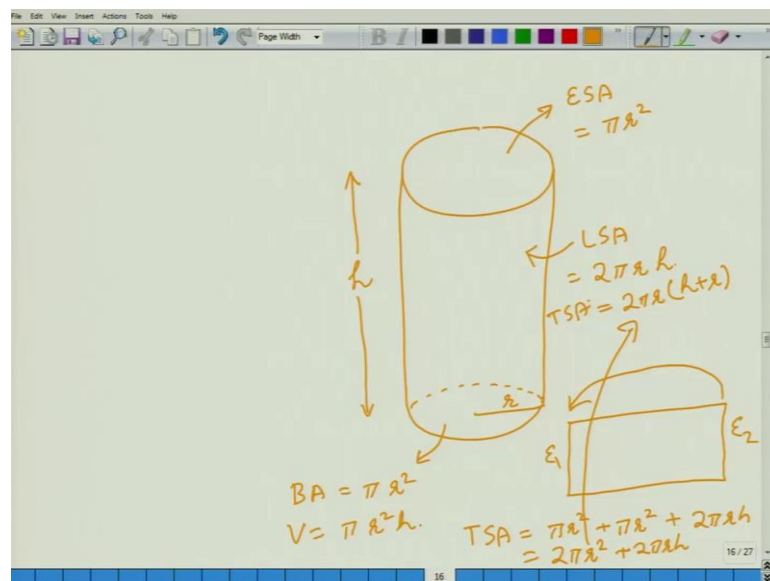 File Edit View Insert Actions Tools Help
Page Width
B I
ESA
= πr²
h
LSA
= 2πr h.
TSA = 2πr(h+r)
r
E₁
E₂
BA = πr²
V = πr²h.
TSA = πr² + πr² + 2πrh
= 2πr² + 2πrh
16 / 27
16